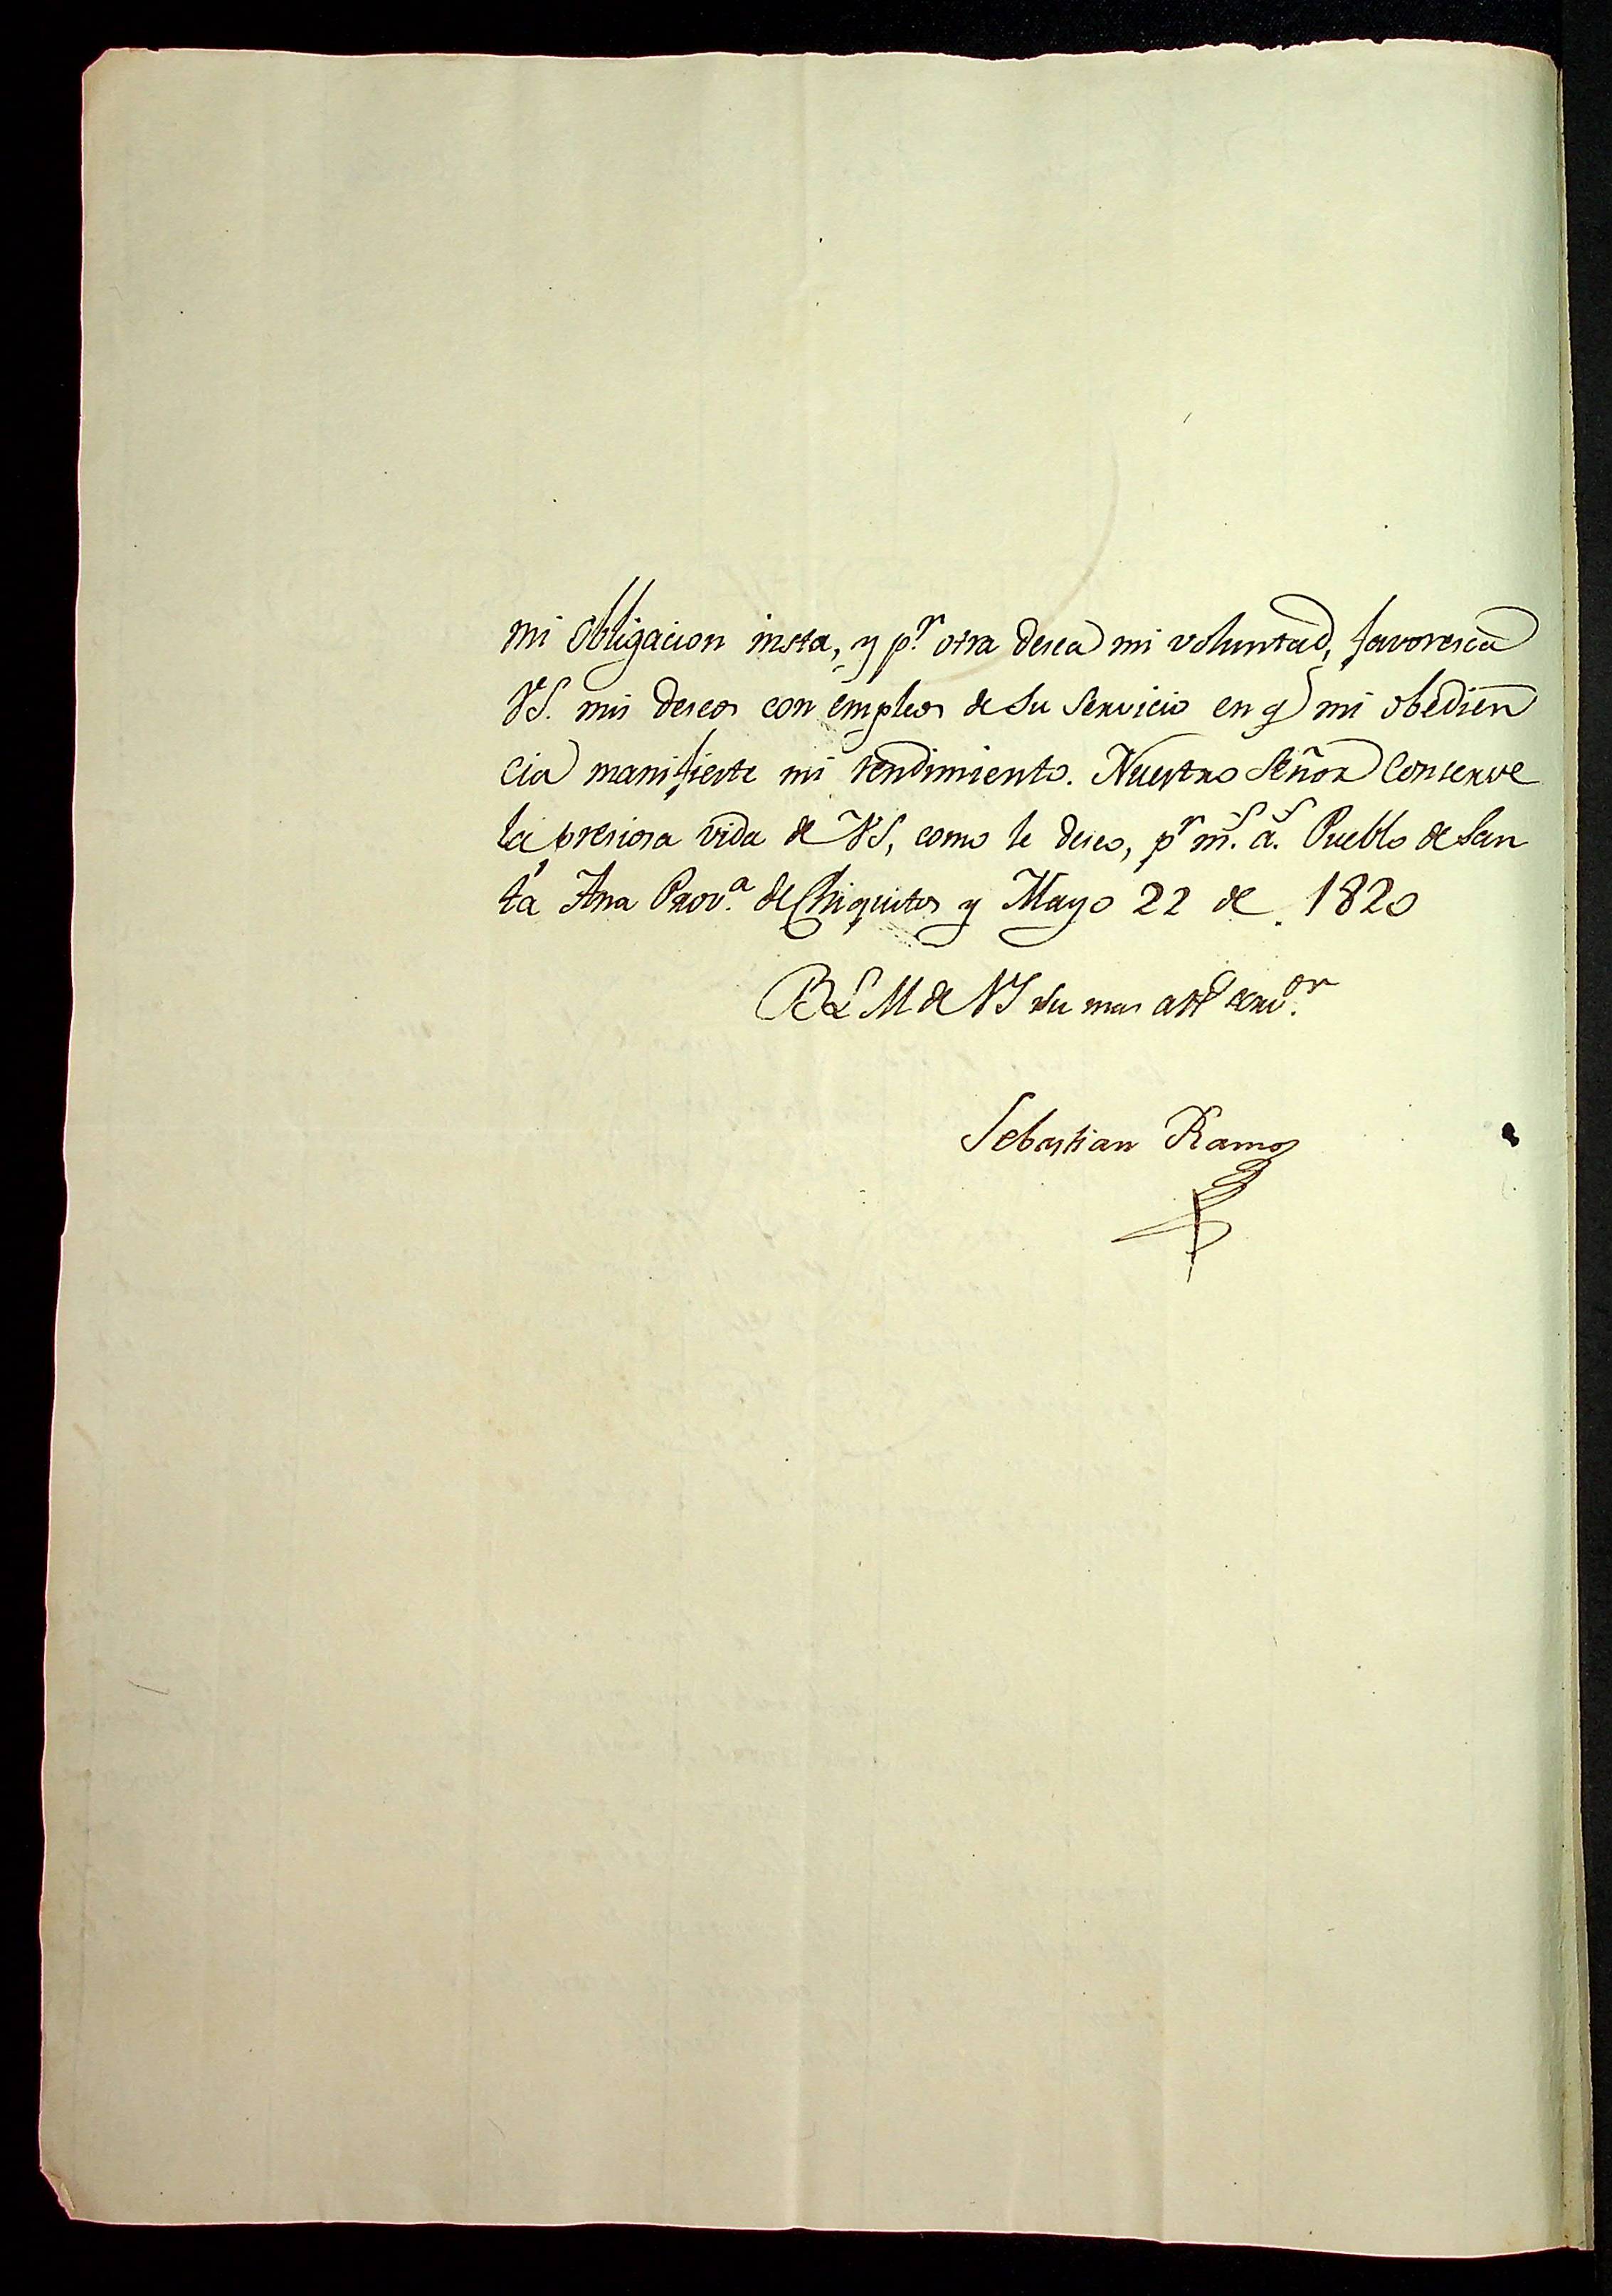 mi obligacion insta, y p.r otra desea mi voluntad, favoresca
VS. mis deseos con empleos de su servicio en q mi obedien
cia manifieste mi rendimiento. Nuestro Señor Conserve
la presiosa vida de VS, como le deseo, p.r m.s a.s Pueblo de San
ta Ana Prov.a de Chiquitos y Mayo 22 de 1820
B L M de VS su mas att.o serv.or
Sebastian Ramos